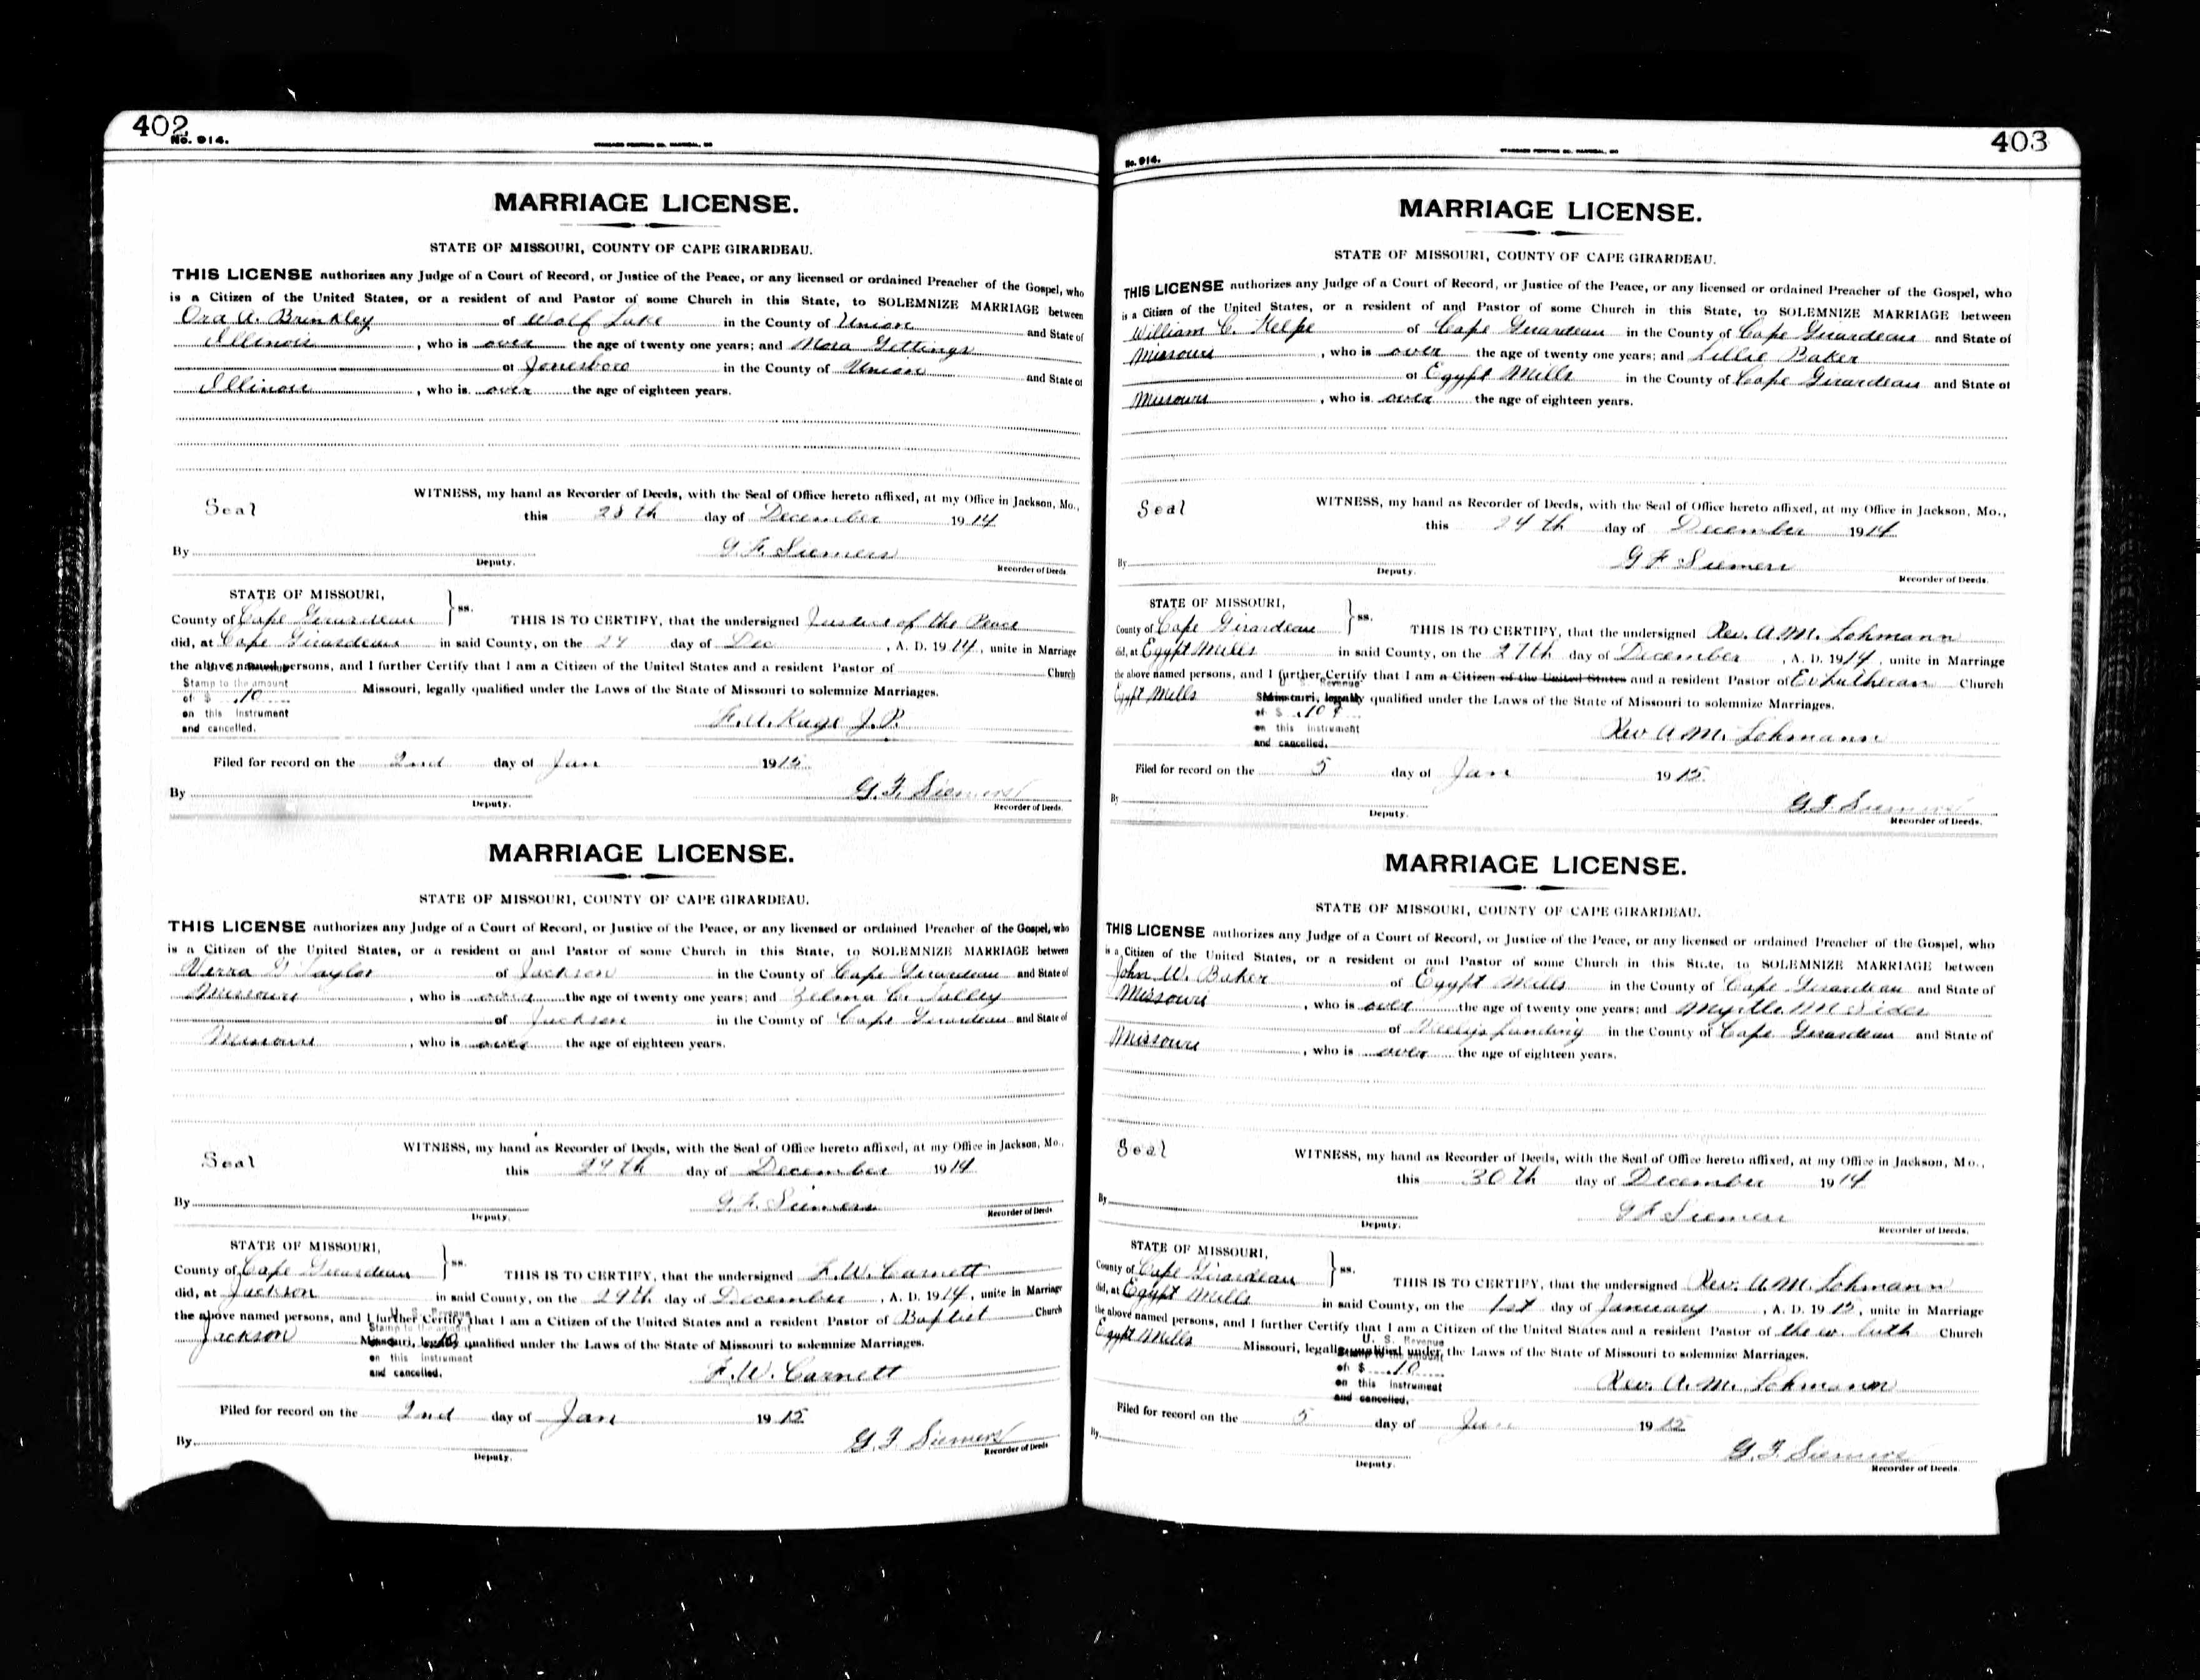 402
No. 914.
MARRIAGE LICENSE.
STATE OF MISSOURI, COUNTY OF CAPE GIRARDEAU.
THIS LICENSE authorizes any Judge of a Court of Record, or Justice of the Peace, or any licensed or ordained Preacher of the Gospel, who
is a Citizen of the United States, or a resident of and Pastor of some Church in this State, to SOLEMNIZE MARRIAGE between
Ora A. Brinkley of Wolf Lake in the County of Union and State of
Illinois, who is over the age of twenty one years; and Mora Gettings
of Jonesboro in the County of Union and State of
Illinois, who is over the age of eighteen years.
Seal
WITNESS, my hand as Recorder of Deeds, with the Seal of Office hereto affixed, at my Office in Jackson, Mo.,
this 28th day of December 1914
By G. F. Siemers
Deputy. Recorder of Deeds
STATE OF MISSOURI,
County of Cape Girardeau } ss. THIS IS TO CERTIFY, that the undersigned Justice of the Peace
did, at Cape Girardeau in said County, on the day of Dec, A. D. 1914, unite in Marriage
the above named persons, and I further Certify that I am a Citizen of the United States and a resident Pastor of Church
Stamp to the amount
Missouri, legally qualified under the Laws of the State of Missouri to solemnize Marriages.
of $ .10
on this instrument
and cancelled.
J. P.
Filed for record on the 2nd day of Jan 1915
By G. F. Siemers
Deputy. Recorder of Deeds.
MARRIAGE LICENSE.
STATE OF MISSOURI, COUNTY OF CAPE GIRARDEAU.
THIS LICENSE authorizes any Judge of a Court of Record, or Justice of the Peace, or any licensed or ordained Preacher of the Gospel, who
is a Citizen of the United States, or a resident of and Pastor of some Church in this State, to SOLEMNIZE MARRIAGE between
Taylor of Jackson in the County of Cape Girardeau and State of
Missouri, who is over the age of twenty one years; and Zelma C. Talley
of Jackson in the County of Cape Girardeau and State of
Missouri, who is over the age of eighteen years.
Seal
WITNESS, my hand as Recorder of Deeds, with the Seal of Office hereto affixed, at my Office in Jackson, Mo.,
this 29th day of December 1914
By G. F. Siemers
Deputy. Recorder of Deeds
STATE OF MISSOURI,
County of Cape Girardeau } ss. THIS IS TO CERTIFY, that the undersigned F. W. Carnett
did, at Jackson in said County, on the 29th day of December, A. D. 1914, unite in Marriage
the above named persons, and I further Certify that I am a Citizen of the United States and a resident Pastor of Baptist Church
U. S. Revenue
Stamp to the amount
Jackson Missouri, legally qualified under the Laws of the State of Missouri to solemnize Marriages.
.10
on this instrument
and cancelled.
F. W. Carnett
Filed for record on the 2nd day of Jan 1915
By G. F. Siemers
Deputy. Recorder of Deeds
403
No. 914.
MARRIAGE LICENSE.
STATE OF MISSOURI, COUNTY OF CAPE GIRARDEAU.
THIS LICENSE authorizes any Judge of a Court of Record, or Justice of the Peace, or any licensed or ordained Preacher of the Gospel, who
is a Citizen of the United States, or a resident of and Pastor of some Church in this State, to SOLEMNIZE MARRIAGE between
William C. Kelpe of Cape Girardeau in the County of Cape Girardeau and State of
Missouri, who is over the age of twenty one years; and Lillie Baker
of Egypt Mills in the County of Cape Girardeau and State of
Missouri, who is over the age of eighteen years.
Seal
WITNESS, my hand as Recorder of Deeds, with the Seal of Office hereto affixed, at my Office in Jackson, Mo.,
this 24th day of December 1914
By G F Siemers
Deputy. Recorder of Deeds.
STATE OF MISSOURI,
County of Cape Girardeau } ss. THIS IS TO CERTIFY, that the undersigned Rev. A. M. Lohmann
did, at Egypt Mills in said County, on the 27th day of December, A. D. 1914, unite in Marriage
the above named persons, and I further Certify that I am a Citizen of the United States and a resident Pastor of Ev Lutheran Church
Revenue
Egypt Mills Missouri, legally qualified under the Laws of the State of Missouri to solemnize Marriages.
of $ .10
on this instrument
and cancelled.
Rev A. M. Lohmann
Filed for record on the 5 day of Jan 1915
By G. F. Siemers
Deputy. Recorder of Deeds.
MARRIAGE LICENSE.
STATE OF MISSOURI, COUNTY OF CAPE GIRARDEAU.
THIS LICENSE authorizes any Judge of a Court of Record, or Justice of the Peace, or any licensed or ordained Preacher of the Gospel, who
is a Citizen of the United States, or a resident of and Pastor of some Church in this State, to SOLEMNIZE MARRIAGE between
John W. Baker of Egypt Mills in the County of Cape Girardeau and State of
Missouri, who is over the age of twenty one years; and Myrtle M. Sides
of Neelys Landing in the County of Cape Girardeau and State of
Missouri, who is over the age of eighteen years.
Seal
WITNESS, my hand as Recorder of Deeds, with the Seal of Office hereto affixed, at my Office in Jackson, Mo.,
this 30th day of December 1914
By G F Siemers
Deputy. Recorder of Deeds.
STATE OF MISSOURI,
County of Cape Girardeau } ss. THIS IS TO CERTIFY, that the undersigned Rev. A. M. Lohmann
did, at Egypt Mills in said County, on the 1st day of January, A. D. 1915, unite in Marriage
the above named persons, and I further Certify that I am a Citizen of the United States and a resident Pastor of the ev. luth Church
U. S. Revenue
Egypt Mills Missouri, legally qualified under the Laws of the State of Missouri to solemnize Marriages.
of $ .10
on this instrument
and cancelled.
Rev. A. M. Lohmann
Filed for record on the 5 day of Jan 1915
By G. F. Siemers
Deputy. Recorder of Deeds.